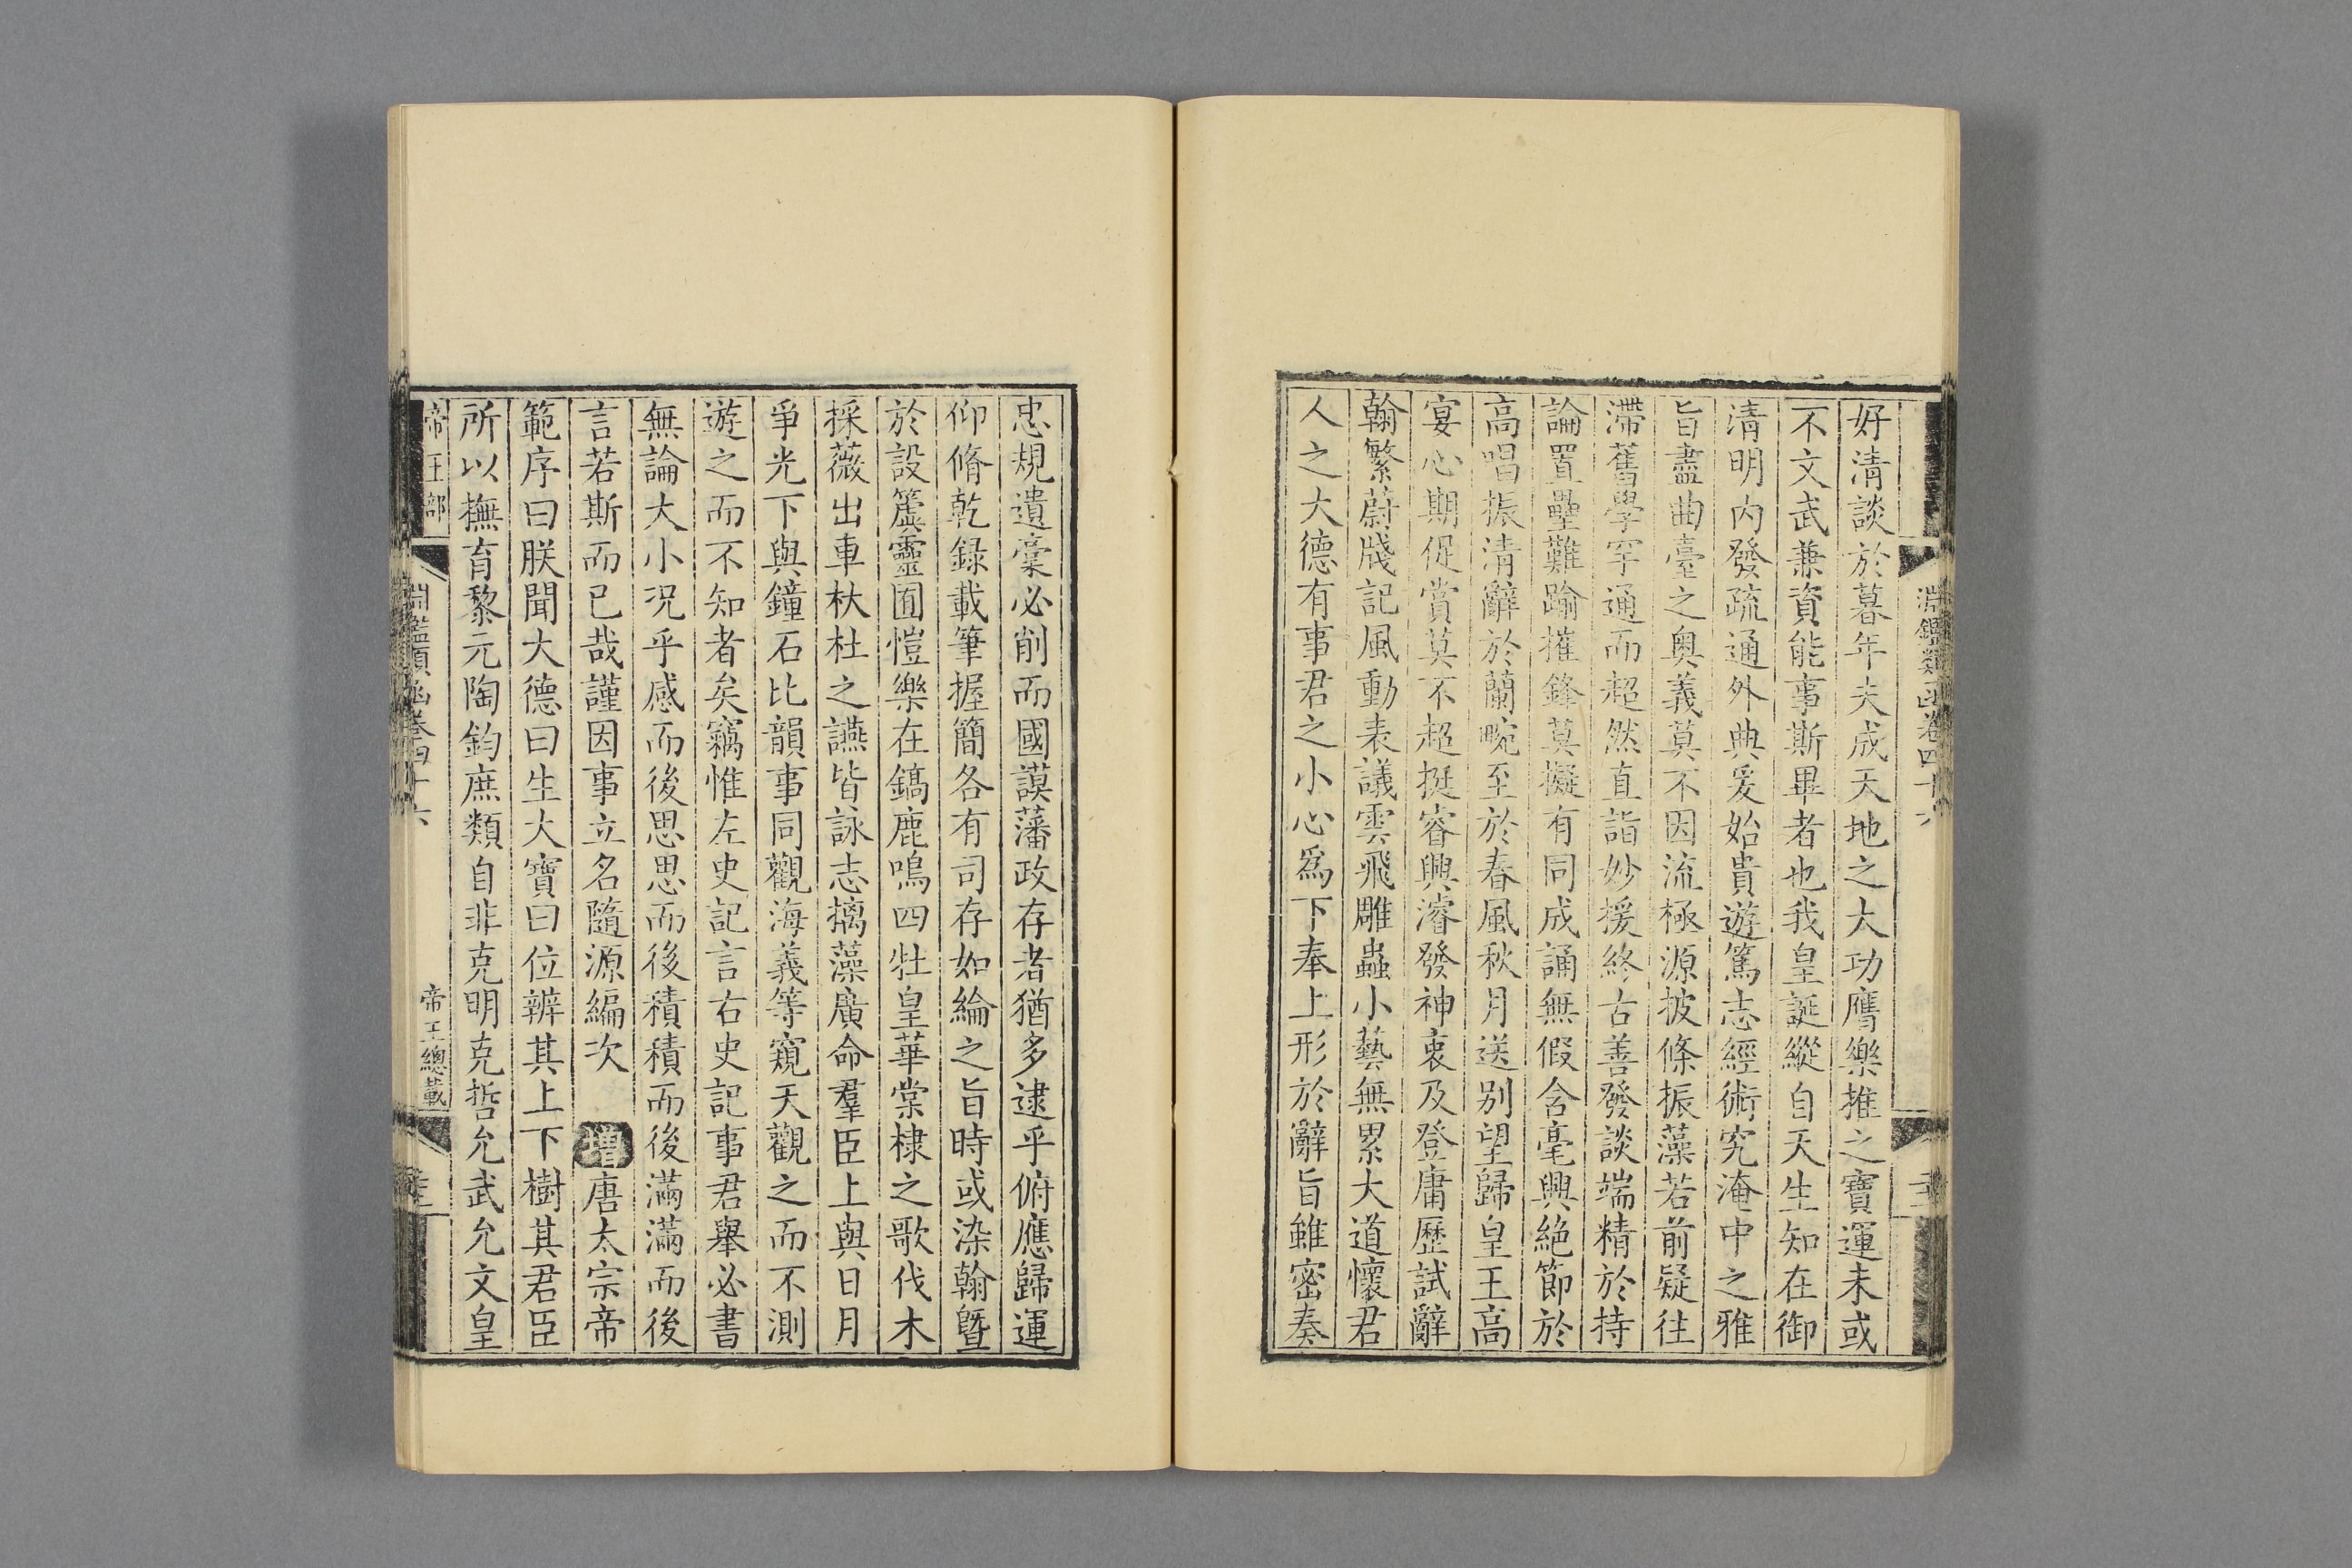 好清談於暮年夫成天地之大功膺樂推之寶運未或
不文武兼資能事斯畢者也我皇誕縱自天生知在御
清明內發疏通外典爰始貴遊篤志經術究淹中之雅
旨盡曲臺之奧義莫不因流極源披條振藻若前疑往
滯舊學罕通而超然直詣妙援終古善發談端精於持
論置壘難踰摧鋒莫擬有同成誦無假含毫興絕節於
高唱振清辭於蘭畹至於春風秋月送別望歸皇王高
宴心期促賞莫不超挺睿興濬發神衷及登庸歷試辭
翰繁蔚牋記風動表議雲飛雕蟲小藝無累大道懷君
人之大德有事君之小心爲下奉上形於辭旨雖密奏
忠規遺稾必削而國謨藩政存者猶多逮乎俯應歸運
仰脩乾録載筆握簡各有司存如綸之旨時或染翰曁
於設簴靈囿愷樂在鎬鹿鳴四牡皇華棠棣之歌伐木
採薇出車杕杜之讌皆詠志摛藻廣命羣臣上與日月
爭光下與鐘石比韻事同觀海義等窺天觀之而不測
遊之而不知者矣竊惟左史記言右史記事君舉必書
無論大小况乎感而後思思而後積積而後滿滿而後
言若斯而已哉謹因事立名隨源編次 增唐太宗帝
範序曰朕聞大德曰生大寶曰位辨其上下樹其君臣
所以撫育黎元陶鈞庶類自非克明克哲允武允文皇
帝王部 淵鑑類函卷四十六 帝王總載